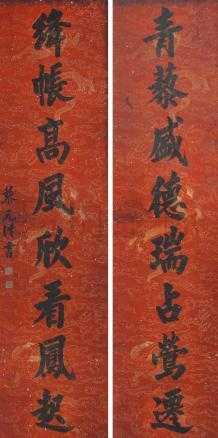 青藜盛德瑞占鶯遷
絳帳高風欣看鳳起
蔡元培書